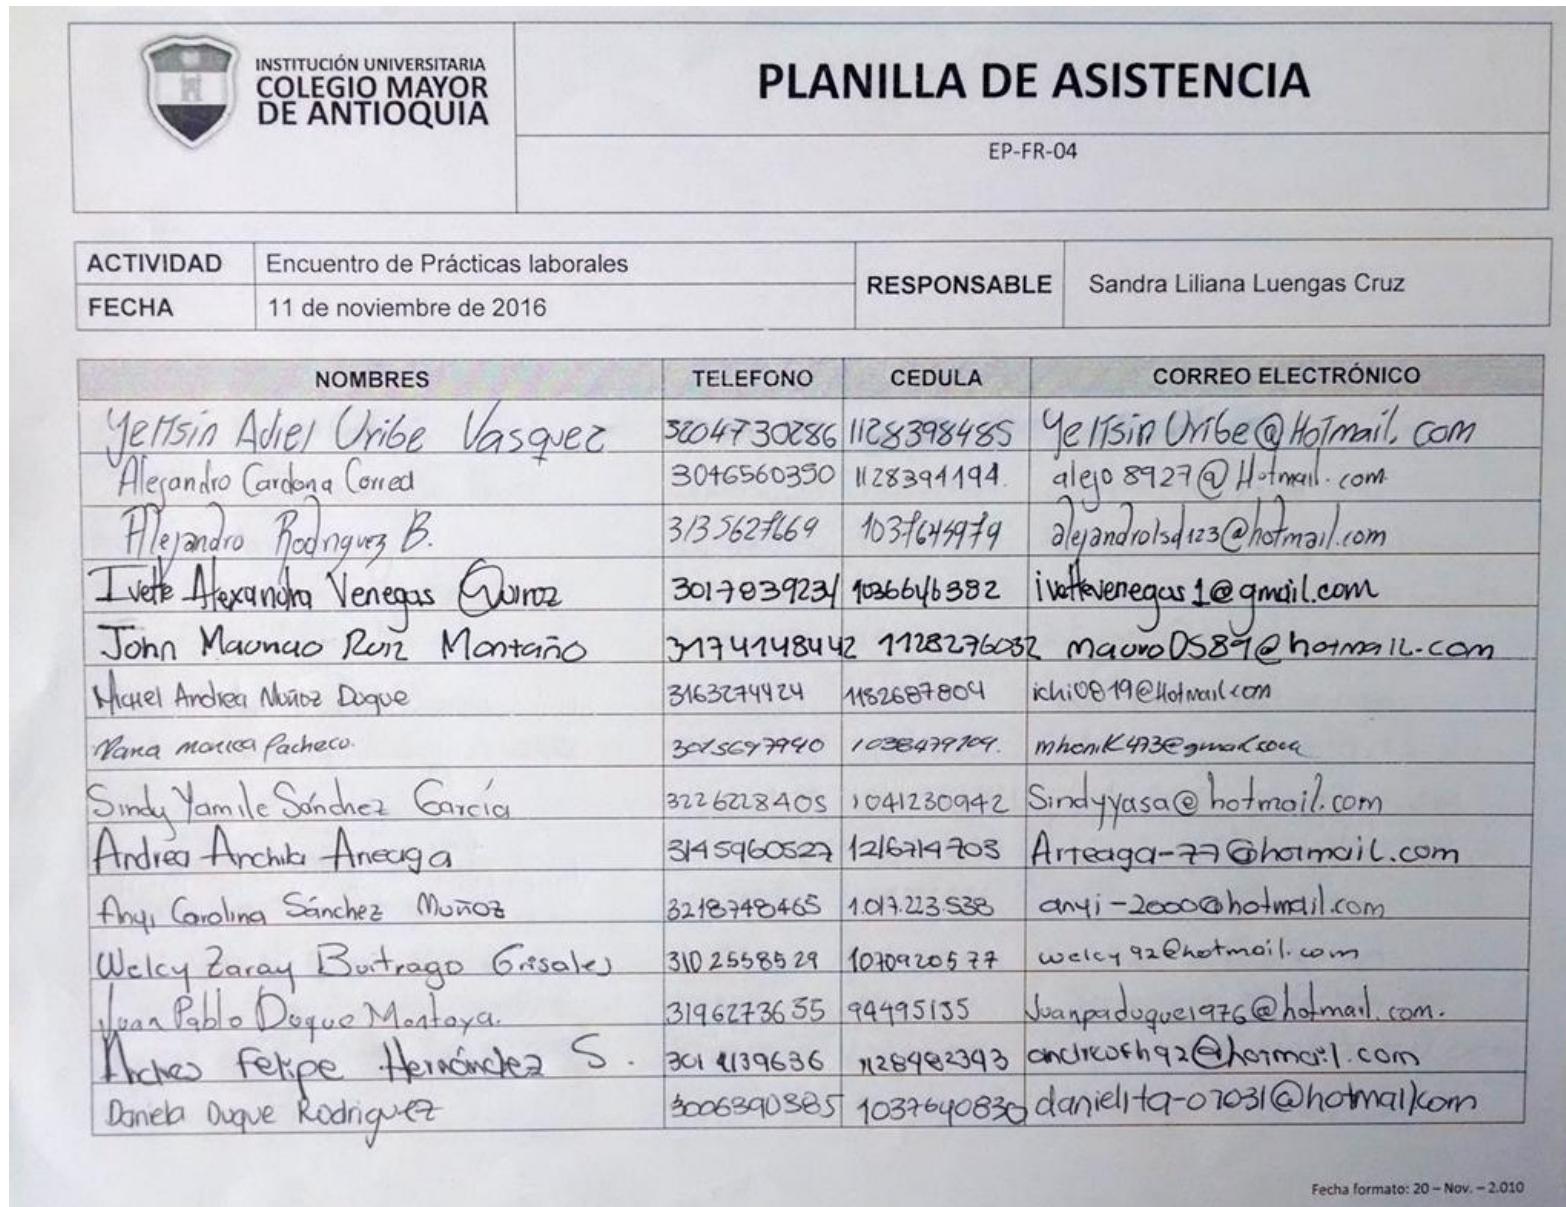 INSTITUCIÓN UNIVERSITARIA
COLEGIO MAYOR
DE ANTIOQUIA
PLANILLA DE ASISTENCIA
EP-FR-04
ACTIVIDAD Encuentro de Prácticas laborales
FECHA 11 de noviembre de 2016
RESPONSABLE Sandra Liliana Luengas Cruz
NOMBRES TELEFONO CEDULA CORREO ELECTRÓNICO
Yeltsin Adiel Uribe Vasquez 3204730286 1128398485 YeltsinUribe@HoTmail.com
Alejandro Cardona Correa 3046560350 1128394194. alejo8927@Hotmail.com
Alejandro Rodriguez B. 3135627669 1037644979 alejandrolsd123@hotmail.com
Ivette Alexandra Venegas Quiroz 3017839231 1036646382 ivettevenegas1@gmail.com
John Mauricio Ruiz Montaño 31741148442 1128276032 mauro0589@hotmail.com
Andrea Muñoz Duque 3163274424 1152687804 ichi0819@Hotmail.com
Maria monica Pacheco. 3015697940 mhonik473@gmail.com
Sindy Yamile Sánchez García 3226228405 1041230942 Sindyyasa@hotmail.com
Andrea Archila Arteaga 3145960527 1216714703 Arteaga-77@hotmail.com
Anyi Carolina Sánchez Muñoz 3218748465 1.017.223.538 anyi-2000@hotmail.com
Welcy Zaray Buitrago Grisales 3102558529 1070920577 welcy92@hotmail.com
Juan Pablo Duque Montoya. 3196273655 94495135 Juanpaduque1976@hotmail.com.
Andres Felipe Hernández S. 1128482393 andresfh92@hotmail.com
Daniela Duque Rodriguez 3006390385 1037640830 danielita-07031@hotmail.com
Fecha formato: 20 – Nov. – 2.010